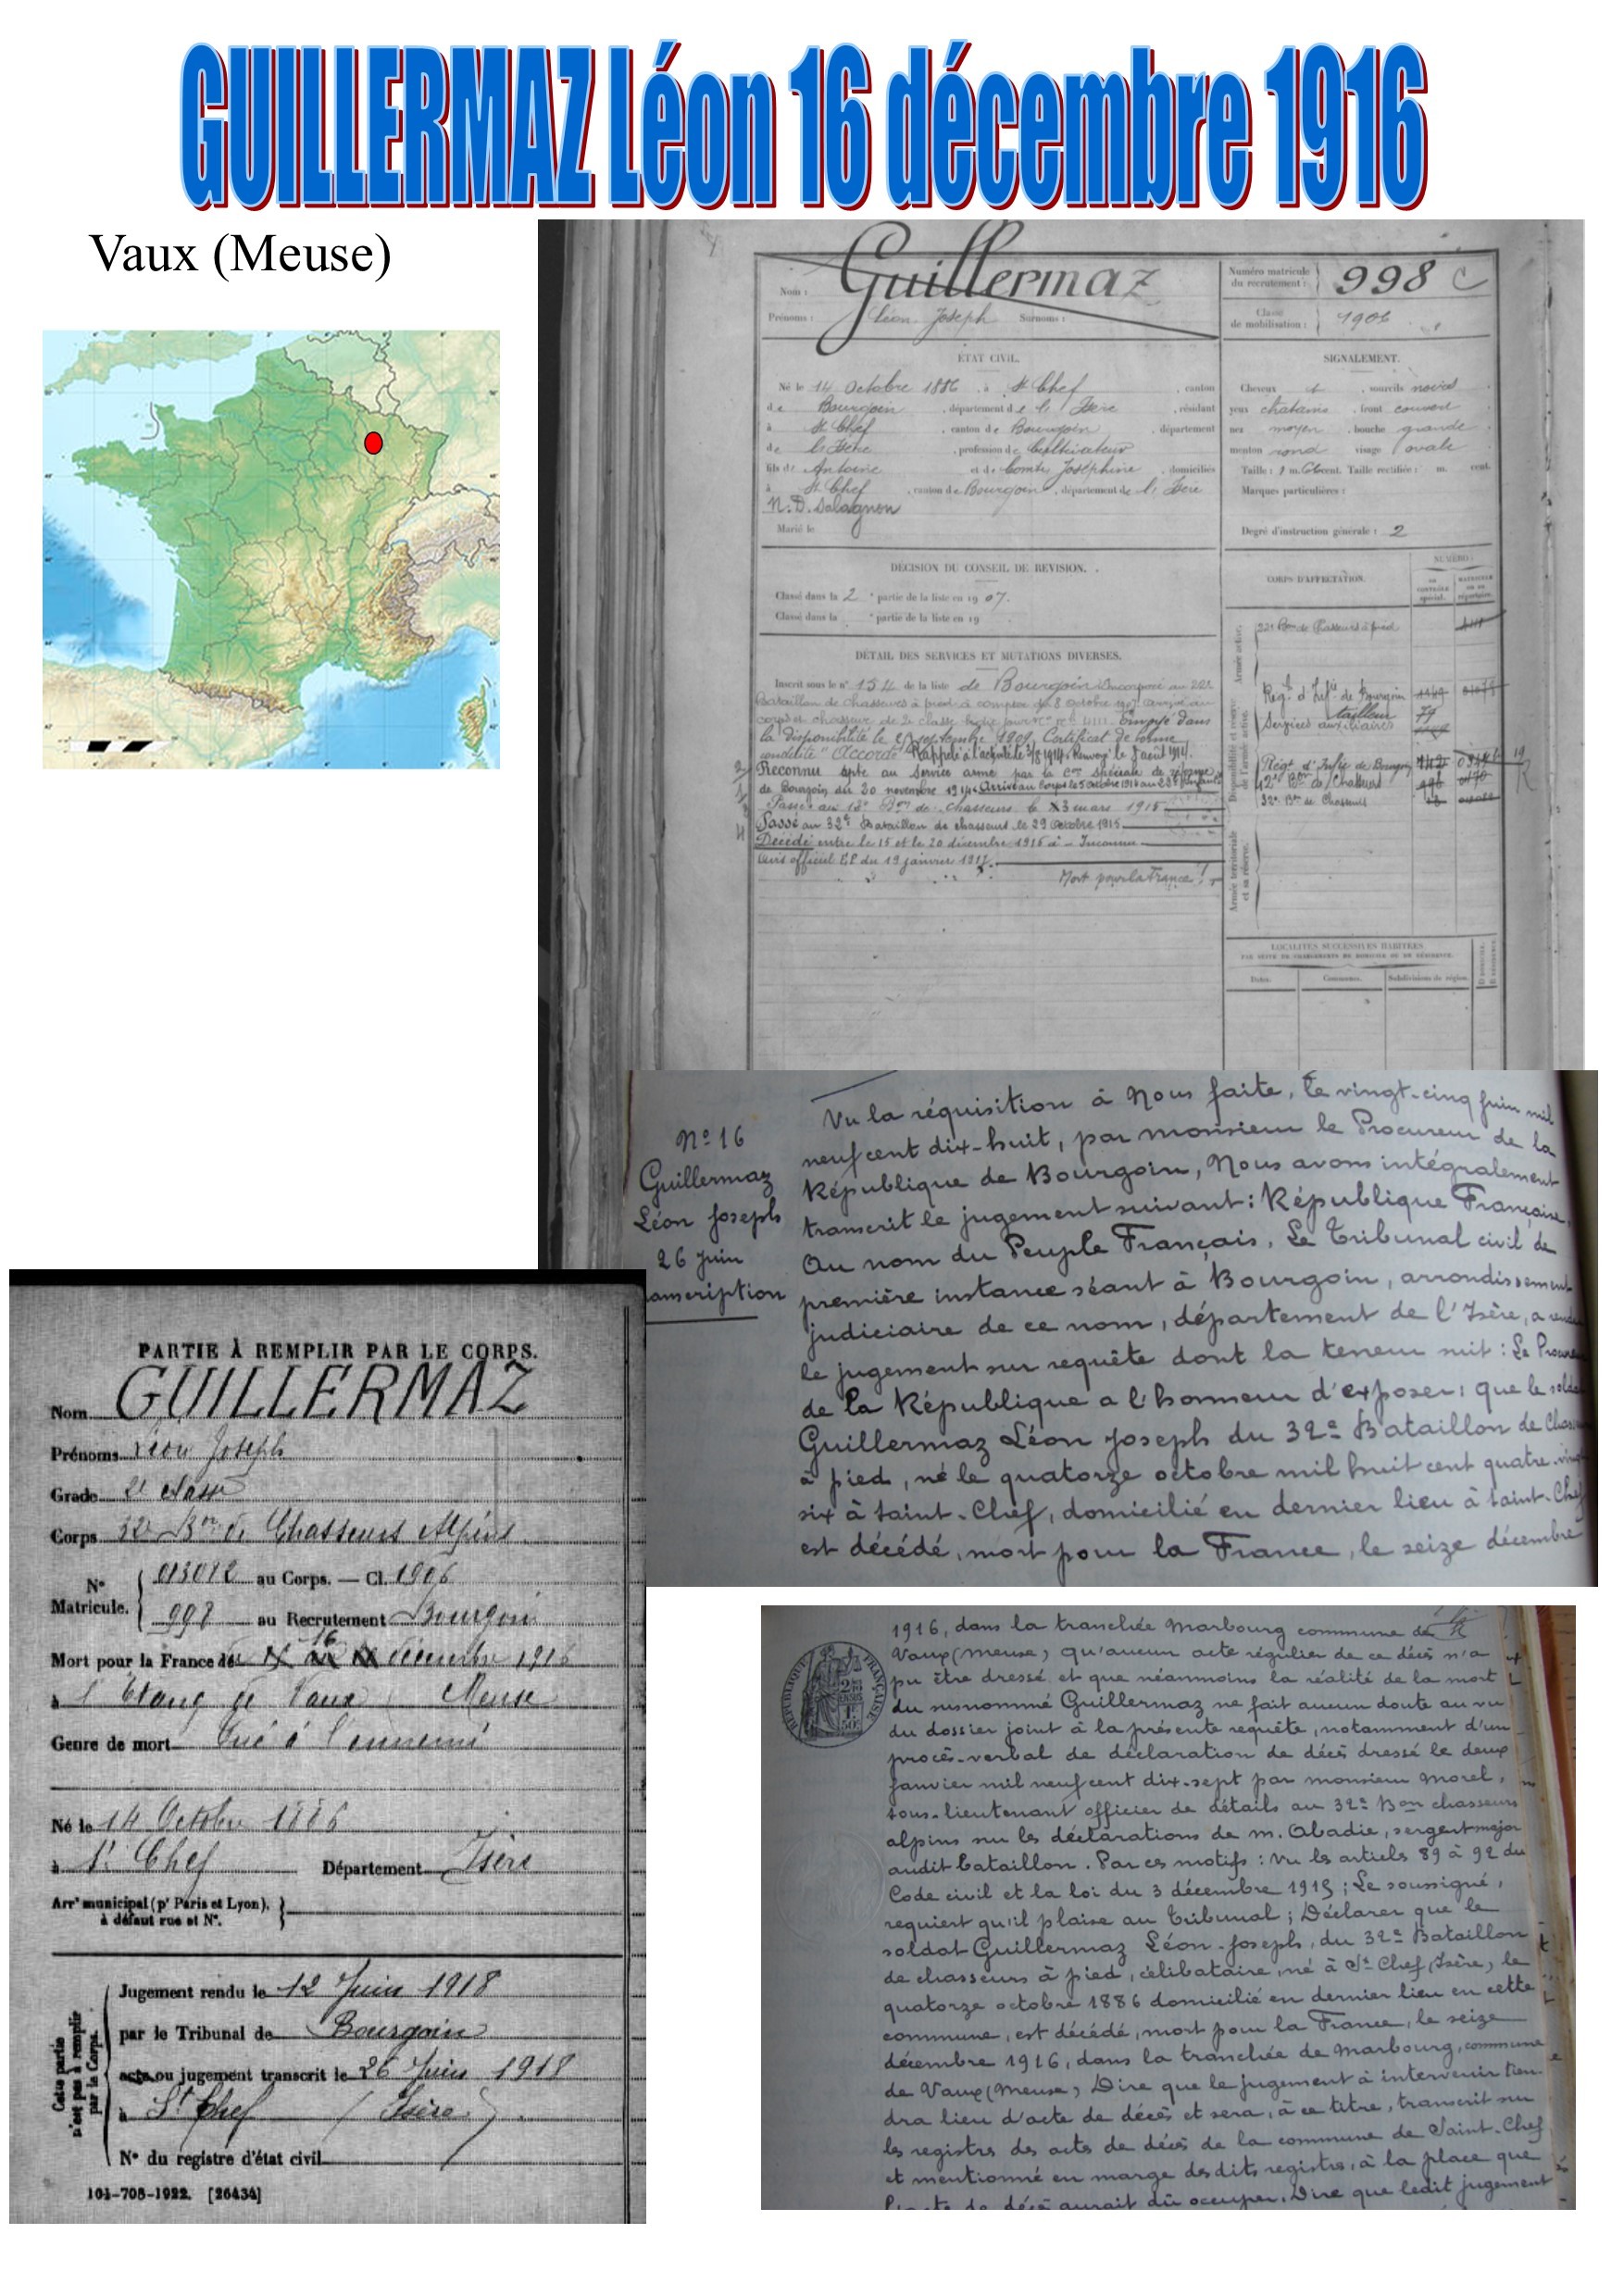 GUILLERMAZ Léon 16 décembre 1916
Vaux (Meuse)
Nom : Guillermaz
Prénoms : Léon Joseph Surnoms :
Numéro matricule du recrutement : 998 C
Classe de mobilisation : 1906
ÉTAT CIVIL.
Né le 14 Octobre 1886, à St Chef, canton
de Bourgoin, département de l'Isère, résidant
à St Chef, canton de Bourgoin, département
de l'Isère, profession de Cultivateur
fils de Antoine et de Comte Joséphine, domiciliés
à St Chef, canton de Bourgoin, département de l'Isère
N. D. Salagnon
Marié le
SIGNALEMENT.
Cheveux et, sourcils noirs
yeux chatains, front couvert
nez moyen, bouche grande
menton rond visage ovale
Taille : 1 m. cent. Taille rectifiée : m. cent.
Marques particulières :
Degré d'instruction générale : 2
DÉCISION DU CONSEIL DE RÉVISION.
Classé dans la 2e partie de la liste en 1907.
Classé dans la e partie de la liste en 19
DÉTAIL DES SERVICES ET MUTATIONS DIVERSES.
Inscrit sous le n° 154 de la liste de Bourgoin Incorporé au 22e
Bataillon de chasseurs à pied à compter du 8 octobre 1907 arrivé au
corps et chasseur de 2e classe
la disponibilité le septembre 1909. Certificat de bonne
conduite "Accordé" Rappelé à l'activité le 3/8 1914 Renvoyé le août 1914.
Reconnu apte au Service armé par la Con spéciale de réforme
de Bourgoin du 20 novembre 1914
Passé au 12e Bon de chasseurs le 3 mars 1915
Passé au 32e Bataillon de chasseurs le 29 Octobre 1915
Décédé entre le 15 et le 20 décembre 1916 à - Inconnu
Avis officiel du 19 janvier 1917.
Mort pour la France
CORPS D'AFFECTATION.
NUMÉRO :
Armée active.
22e Bon de Chasseurs à pied
Disponibilité et réserve de l'armée active.
Régt d'Infie de Bourgoin
Services auxiliaires tailleur
Régt d'Infie de Bourgoin
12e Bon de Chasseurs
32e Bn de Chasseurs
Armée territoriale et sa réserve.
LOCALITÉS SUCCESSIVES HABITÉES
PAR SUITE DE CHANGEMENTS DE DOMICILE OU DE RÉSIDENCE.
Dates. Communes. Subdivisions de région.
N° 16
Guillermaz
Léon Joseph
26 juin
anscription
Vu la réquisition à Nous faite, le vingt-cinq juin mil
neuf cent dix-huit, par monsieur le Procureur de la
République de Bourgoin, Nous avons intégralement
transcrit le jugement suivant : République Française.
Au nom du Peuple Français. Le Tribunal civil de
première instance séant à Bourgoin, arrondissement
judiciaire de ce nom, département de l'Isère, a rendu
le jugement sur requête dont la teneur suit : Le Procureur
de la République a l'honneur d'exposer : que le soldat
Guillermaz Léon Joseph du 32e Bataillon de Chass
à pied, né le quatorze octobre mil huit cent quatre-vingt
six à Saint-Chef, domicilié en dernier lieu à Saint-Chef
est décédé, mort pour la France, le seize décembre
PARTIE À REMPLIR PAR LE CORPS.
Nom GUILLERMAZ
Prénoms Léon Joseph
Grade 2e classe
Corps 32e Bon de Chasseurs Alpins
N° Matricule. { 013012 au Corps. — Cl. 1906
998 au Recrutement Bourgoin
Mort pour la France le 16 décembre 1916
à l'Etang de Vaux (Meuse
Genre de mort Tué à l'ennemi
Né le 14 Octobre 1886
à St Chef Département Isère
Arrt municipal (pr Paris et Lyon), à défaut rue et N°. }
Cette partie n'est pas à remplir par le Corps.
Jugement rendu le 12 Juin 1918
par le Tribunal de Bourgoin
acte ou jugement transcrit le 26 Juin 1918
à St Chef (Isère)
N° du registre d'état civil
101-708-1922. [26434]
RÉPUBLIQUE FRANÇAISE
1916, dans la tranchée Marbourg commune de
Vaux (Meuse), qu'aucun acte régulier de ce décès n'a
pu être dressé et que néanmoins la réalité de la mort
du susnommé Guillermaz ne fait aucun doute au vu
du dossier joint à la présente requête, notamment d'un
procès-verbal de déclaration de décès dressé le deux
janvier mil neuf cent dix-sept par monsieur Morel,
sous-lieutenant officier de détails au 32e Bon chasseurs
alpins sur les déclarations de M. Abadie, sergent major
audit bataillon. Par ces motifs : Vu les articles 89 à 92 du
Code civil et la loi du 3 décembre 1915 ; Le soussigné,
requiert qu'il plaise au Tribunal ; Déclarer que le
soldat Guillermaz Léon-Joseph, du 32e Bataillon
de chasseurs à pied, célibataire, né à St Chef (Isère), le
quatorze octobre 1886 domicilié en dernier lieu en cette
commune, est décédé, mort pour la France, le seize
décembre 1916, dans la tranchée de Marbourg, commune
de Vaux (Meuse), Dire que le jugement à intervenir tien-
dra lieu d'acte de décès et sera, à ce titre, transcrit sur
les registres des actes de décès de la commune de Saint-Chef
et mentionné en marge desdits registres, à la place que
l'acte de décès aurait dû occuper. Dire que ledit jugement